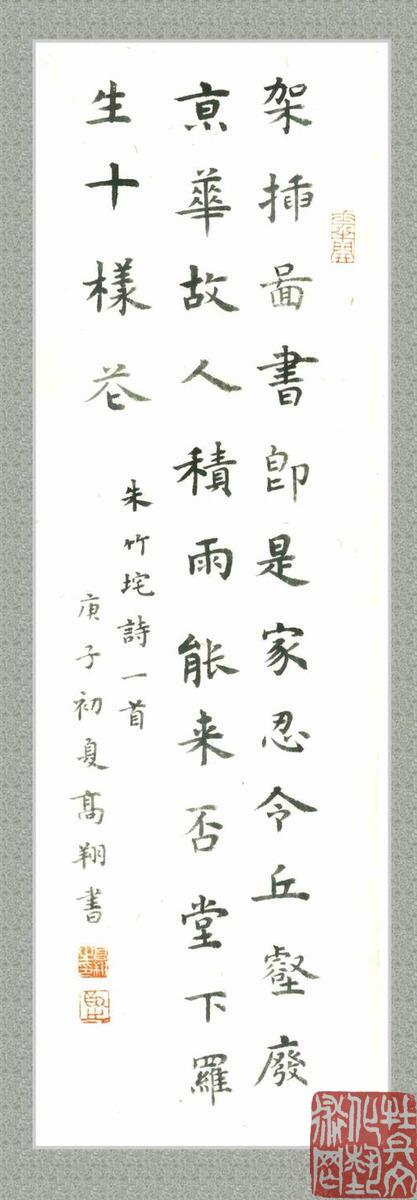 架插啚書即是家忍令丘壑廢
亰華故人積雨能来否堂下羅
生十樣花
朱竹垞詩一首
庚子初夏髙翔書